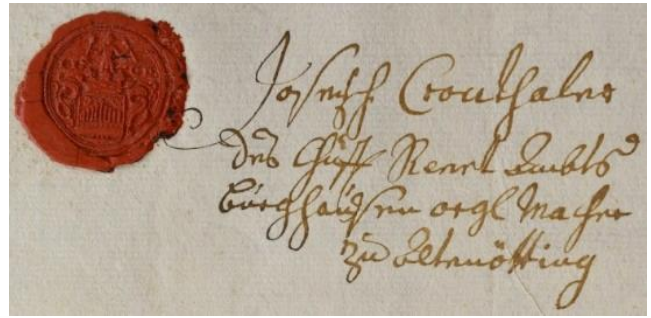 Joseph Cronthaler
des Chürff Rent Ambts
Burghausen orgl Macher
zu Altenötting